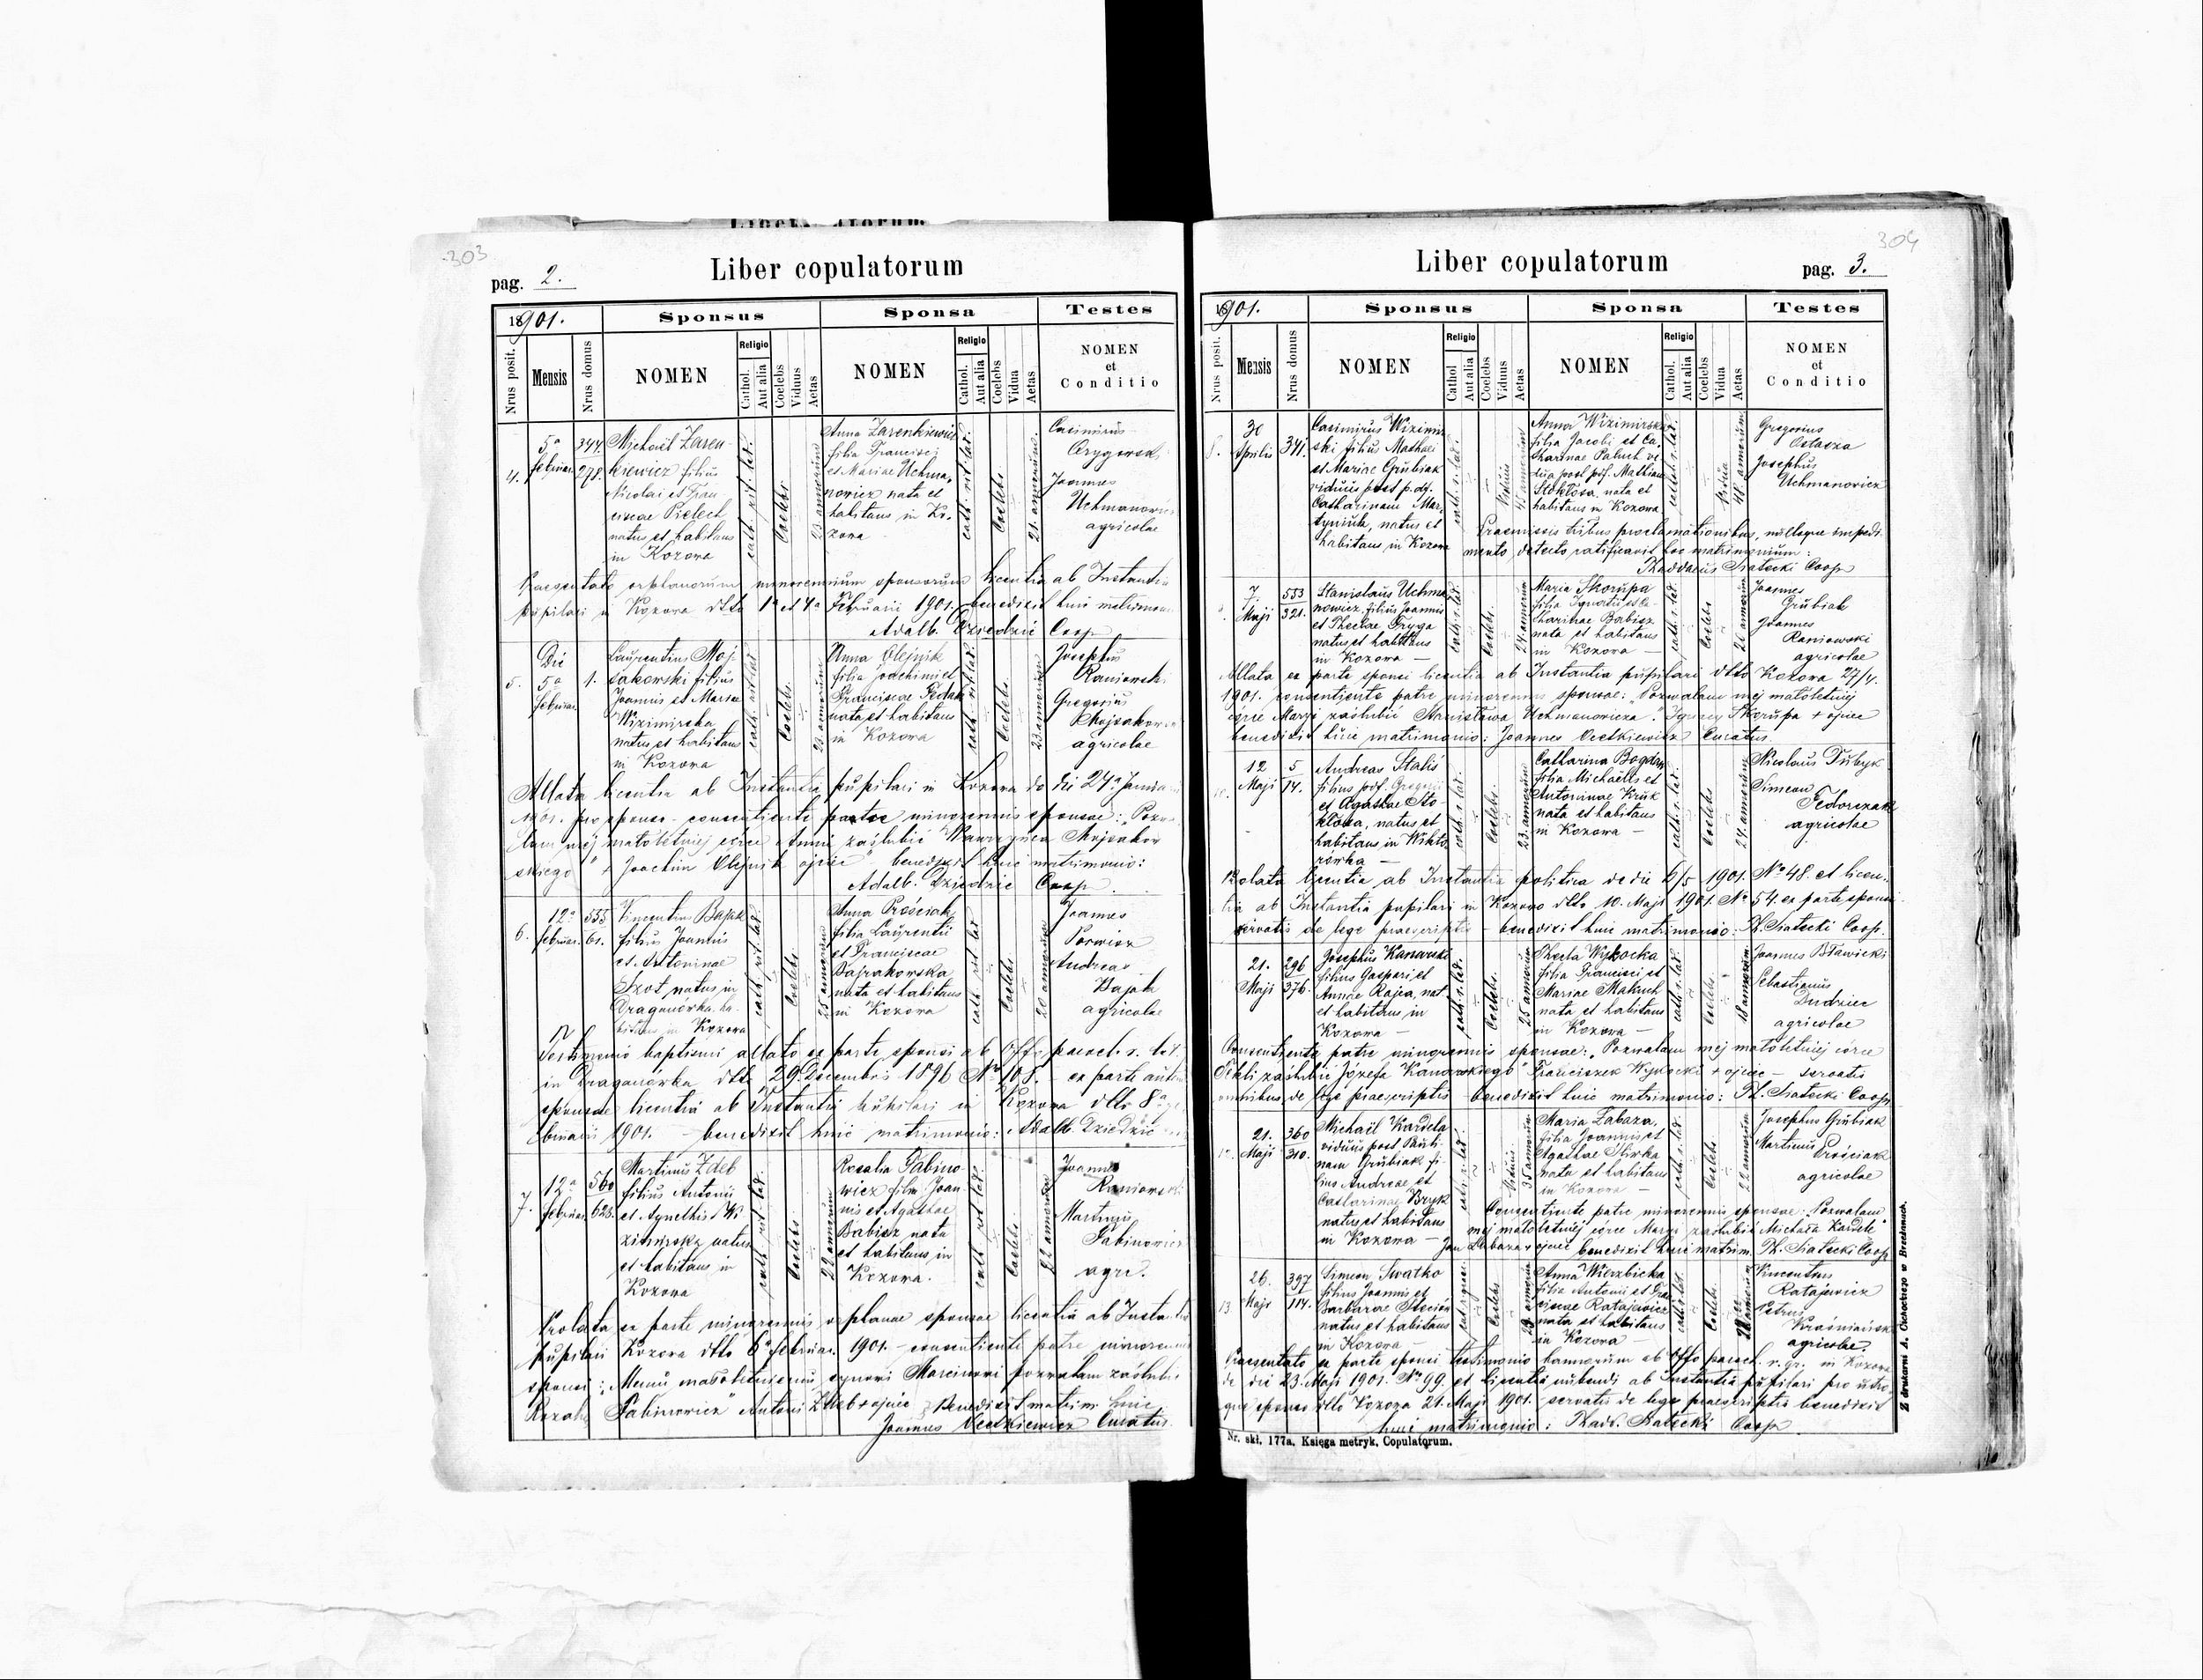 303
pag. 2.
Liber copulatorum
1901.
Sponsus
Sponsa
Testes
Nrus posit.
Mensis
Nrus domus
NOMEN
Religio
Cathol.
Aut alia
Coelebs
Viduus
Aetas
NOMEN
Religio
Cathol.
Aut alia
Coelebs
Vidua
Aetas
NOMEN
et
Conditio
4.
5a
Februar.
344.
278.
Michael Zaren-
kiewicz filius
Nicolai et Fran
ciscae Pielech
natus et habitans
in Kozowa
cath. rit. lat.
Coelebs
23 annorum
Anna Zarenkiewicz
filia Francisci
et Mariae Uchma-
nowicz nata et
habitans in Ko-
zowa
cath. rit. lat.
Coelebs
21. annorum
Casimirus
Joannes
Uchmanowicz
agricolae
Praesentate orphanorum minorennium sponsorum licentia ab Instantia
pupilari in Kozowa dtto 1a et 4a Februarii 1901. benedixit huic matrimonio
Adalb. Dziedzic Coop.
5.
Die
5a
Februar.
1.
Laurentius Moj-
sakowski filius
Joannis et Mariae
Wizimirska
natus et habitans
in Kozowa
cath. rit. lat.
Coelebs
23. annorum
Anna Olejnik
filia Joachimi et
Franciscae Fedak
nata et habitans
in Kozowa
cath. rit. lat.
Coelebs
23 annorum
Josephus
Raniowski
Gregorius
Mojsakowski
agricolae
Allata licentia ab Instantia pupilari in Kozowa do die 24a Januarii
1901. pro sponso - consentiente patre minorennis sponsae: „Pozwa-
lam mej małoletniej córce Annie zaślubić Wawrzyńca Mojsakow
skiego" + Joachim Olejnik ojciec" benedixit huic matrimonio:
Adalb. Dziedzic Coop.
6.
12a
Februar.
555
61.
Vincentius Bajak
filius Joannis
et Antoninae
Szot, natus in
Draganówka, ha-
bitans in Kozowa
cath. rit. lat.
Coelebs
25 annorum
Anna Prościak
filia Laurentii
et Franciscae
Bajrakowska
nata et habitans
in Kozowa
cath. rit. lat.
Coelebs
20 annorum
Joannes
Andreas
Bajak
agricolae
Testimonio baptismi allato ex parte sponsi ab Offo paroch. r. lat.
in Draganówka dtto 29. Decembris 1896 No 108. - ex parte autem
sponsae licentiâ ab Instantiâ pupilari in Kozowa dtto 8a Fe-
bruarii 1901. - benedixit huic matrimonio: Adalb. Dziedzic
7.
12a
Februar.
560
623.
Martinus Zdeb
filius Antonii
et Agnethis Wi
zimirska natus
et habitans in
Kozowa
cath. rit. lat.
Coelebs
22 annorum
Rosalia Fabino-
wicz filia Joan-
nis et Agathae
Babisz nata
et habitans in
Kozowa.
cath. rit. lat.
Coelebs
22 annorum
Joannes
Raniowski
Martinus
Fabinowicz
agri.
Prolata ex parte minorennis orphanae sponsae licentiâ ab Instantia
pupilari Kozowa dtto 6a Februar. 1901. - consentiente patre minorennis
sponsi: „Memu małoletniemu synowi Marcinowi pozwalam zaślubić
Rozalię Fabinowicz" Antoni Zdeb + ojciec Benedixit matrim. huic
Joannes Vectkiewicz Curatus.
304
Liber copulatorum
pag. 3.
1901.
Sponsus
Sponsa
Testes
Nrus posit.
Mensis
Nrus domus
NOMEN
Religio
Cathol.
Aut alia
Coelebs
Viduus
Aetas
NOMEN
Religio
Cathol.
Aut alia
Coelebs
Vidua
Aetas
NOMEN
et
Conditio
8.
30
Aprilis
341.
Casimirus Wizimir
ski filius Mathaei
et Mariae Grubiak
viduus post p. df.
Catharinam Mar-
tyniuk, natus et
habitans in Kozowa
cath. r. lat.
Viduus
annorum
Anna Wizimirska
filia Jacobi et Ca-
tharinae Paluch vi-
dua post pdf. Mathiam
Stokłosa, nata et
habitans in Kozowa
cath. r. lat.
Vidua
48. annorum
Gregorius
Ostasza
Josephus
Uchmanowicz
Praemissis tribus proclamationibus, nulloque impedi-
mento detecto ratificavit hoc matrimonium:
Thaddaeus Siatecki Coop.
7.
Maji
553
321.
Stanislaus Uchma
nowicz, filius Joannis
et Theclae Fryga
natus et habitans
in Kozowa —
cath. r. lat.
Coelebs.
24 annorum
Maria Skorupa
filia Ignatii et Ca-
tharinae Babisz
nata et habitans
in Kozowa —
cath. r. lat.
Coelebs
annorum
Joannes
Grubiak
Joannes
Raniowski
agricolae
Allata ex parte sponsi licentia ab Instantia pupilari dtto Kozowa 27/4.
1901. consentiente patre minorennis sponsae: „Pozwalam mej małoletniej
córce Maryi zaślubić Stanisława Uchmanowicza." Ignacy Skorupa + ojciec
benedixit huic matrimonio: Joannes Vectkiewicz Curatus.
12
Maji
5
14.
Andreas Stalis
filius pdf. Gregorii
et Agathae Sto-
kłosa, natus et
habitans in Wikto-
rówka —
cath. r. lat.
Coelebs
23. annorum
Catharina Bogdan
filia Michaelis et
Antoninae Kruk
nata et habitans
in Kozowa —
cath. r. lat.
Coelebs
24. annorum
Nicolaus Dubyk
Simeon
Fedorczak
agricolae
Prolata licentia ab Instantia politica de die 6/5 1901. No 48. et licen-
tia ab Instantia pupilari in Kozowa dtto 10. Maji 1901. No 54. ex parte sponsi
servatis de lege praescriptis - benedixit huic matrimonio: Th. Siatecki Coop.
21.
Maji
296
376.
Josephus Kanowski
filius Gaspari et
Annae Rajca, nat.
et habitans in
Kozowa —
cath. r. lat.
Coelebs.
25 annorum
Thecla Wysocka
filia Francisci et
Mariae Makuch
nata et habitans
in Kozowa —
cath. r. lat.
Coelebs
18 annorum
Joannes Bławicki
Sebastianus
Dudziec
agricolae
Consentiente patre minorennis sponsae: „Pozwalam mej małoletniej córce
Tekli zaślubić Józefa Kanowskiego" Franciszek Wysocki + ojciec - servatis
omnibus de lege praescriptis benedixit huic matrimonio: Th. Siatecki Coop.
21.
Maji
360
310.
Michaël Kardela
viduus post Justi-
nam Grubiak fi-
lius Andreae et
Catharinae Bryk
natus et habitans
in Kozowa —
cath. r. lat.
Viduus
35 annorum
Maria Łabaza,
filia Joannis et
Agathae Stirka
nata et habitans
in Kozowa —
cath. r. lat.
Coelebs.
22 annorum
Josephus Grubiak
Martinus Prościak
agricolae
Consentiente patre minorennis sponsae: „Pozwalam
mej małoletniej córce Maryi zaślubić Michała Kardelę"
Jan Łabaza + ojciec benedixit huic matrim. Th. Siatecki Coop.
13.
26.
Maji
397
114.
Simeon Swatko
filius Joannis et
Barbarae Stecień
natus et habitans
in Kozowa —
Coelebs
annorum
Anna Wierzbicka
filia Antonii et Fran-
ciscae Ratajewicz
nata et habitans
in Kozowa
cath. r. lat.
Coelebs
annorum
Vincentius
Ratajewicz
Petrus
agricolae.
Praesentato ex parte sponsi testimonio bannorum ab Offo paroch. r. gr. in Kozowa
de die 23. Maji 1901. No 99 et licentia nubendi ab Instantia pupilari pro utro-
que sponso dtto Kozowa 21. Maji 1901. servatis de lege praescriptis benedixit
huic matrimonio: Thadd. Siatecki Coop.
Nr. skł. 177a. Księga metryk. Copulatorum.
Z drukarni A. Oschockiego w Brzeżanach.